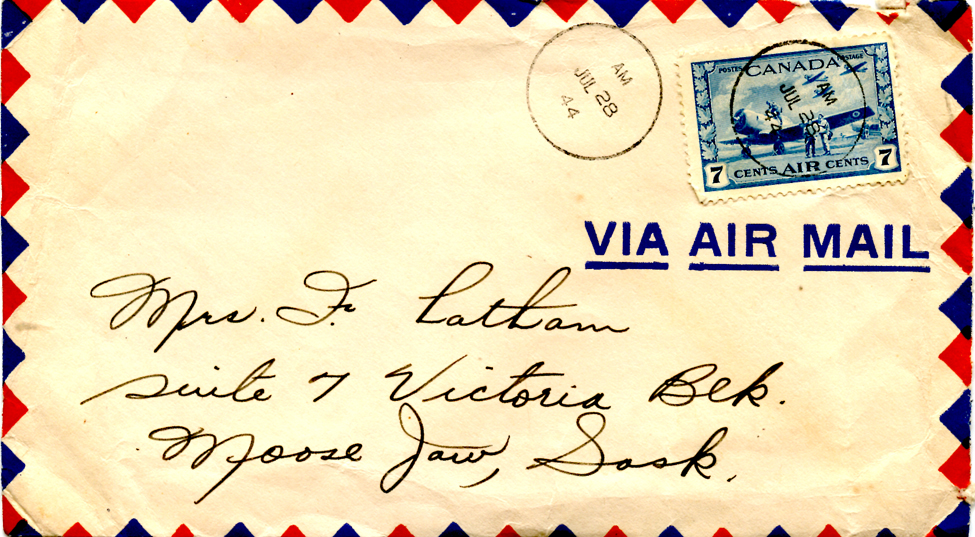 AM
JUL 28
44
POSTES CANADA POSTAGE
AM
JUL 28
44
7 CENTS AIR CENTS 7
VIA AIR MAIL
Mrs. F. Latham
suite 7 Victoria Blk.
Moose Jaw, Sask.